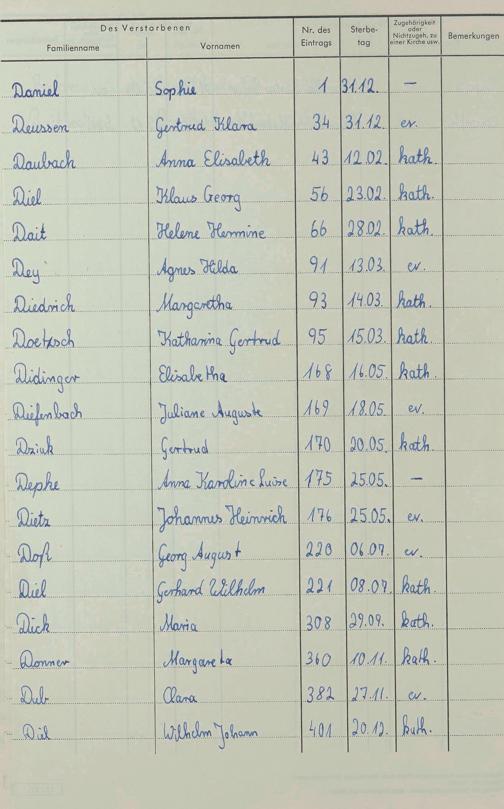 Des Verstorbenen
Familienname Vornamen Nr. des Eintrags Sterbetag Zugehörigkeit oder Nichtzugeh. zu einer Kirche usw. Bemerkungen
Daniel Sophie 1 31.12. —
Deussen Gertrud Klara 34 31.12 ev.
Daubach Anna Elisabeth 43 12.02. kath.
Diel Klaus Georg 56 23.02. kath.
Dait Helene Hermine 66 28.02. kath.
Dey Agnes Hilda 91 13.03. ev.
Diedrich Margaretha 93 14.03. kath.
Doetzsch Katharina Gertrud 95 15.03. kath.
Didinger Elisabetha 168 16.05. kath.
Diefenbach Juliane Auguste 169 18.05. ev.
Dziuk Gertrud 170 20.05. kath.
Dephe Anna Karoline Luise 175 25.05. —
Dietz Johannes Heinrich 176 25.05. ev.
Georg August 220 06.07. ev.
Diel Gerhard Wilhelm 221 08.07. kath.
Dick Maria 308 29.09. kath.
Donner Margareta 360 10.11. kath.
Dub Clara 382 27.11. ev.
Diel Wilhelm Johann 401 20.12. kath.